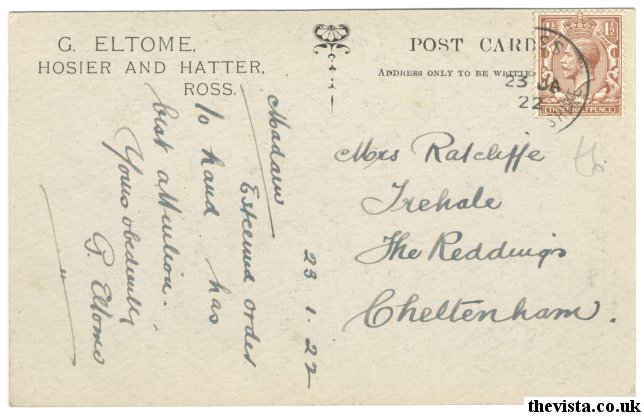 G. ELTOME,
HOSIER AND HATTER,
ROSS.
POST CARD
ADDRESS ONLY TO BE WRITTEN
1½
THREE HALFPENCE
ROSS
23 JA
22
Madam
Esteemed order
to hand has
best attention.
Yours obediently
G. Eltome
23.1.22
Mrs Ratcliffe
Trehale
The Reddings
Cheltenham.
thevista.co.uk